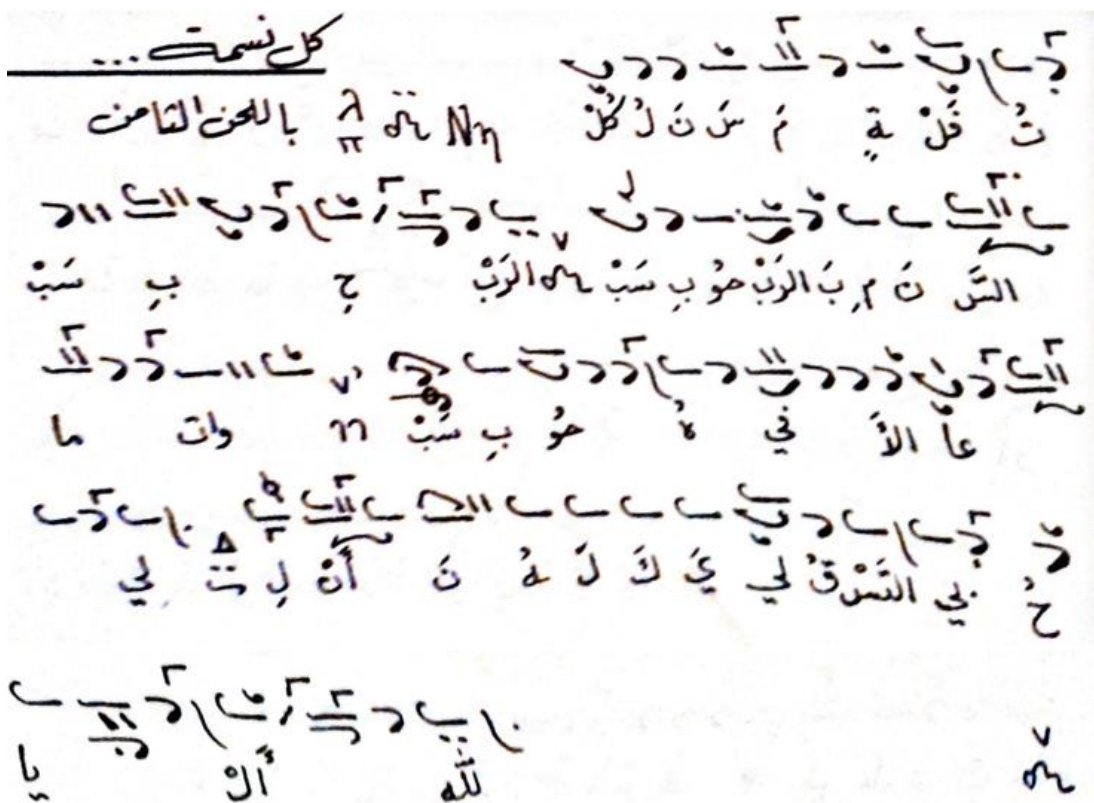 كل نسمة ...
باللحن الثامن Νη كُلْ لُ نَ سَ مَ ةٍ فَلْ تُ
سَبْ بِ حِ الرَبْ سَبْ بِ حُو الرَبْ بَ مِ نَ السَّ
ما وات سَبْ بِ حُو هُ في الأَ عا
لي لِ أَنْ نَ هُ لَ كَ يَ لي قُ التَسْ بي حُ
يا أَلْ للَّه